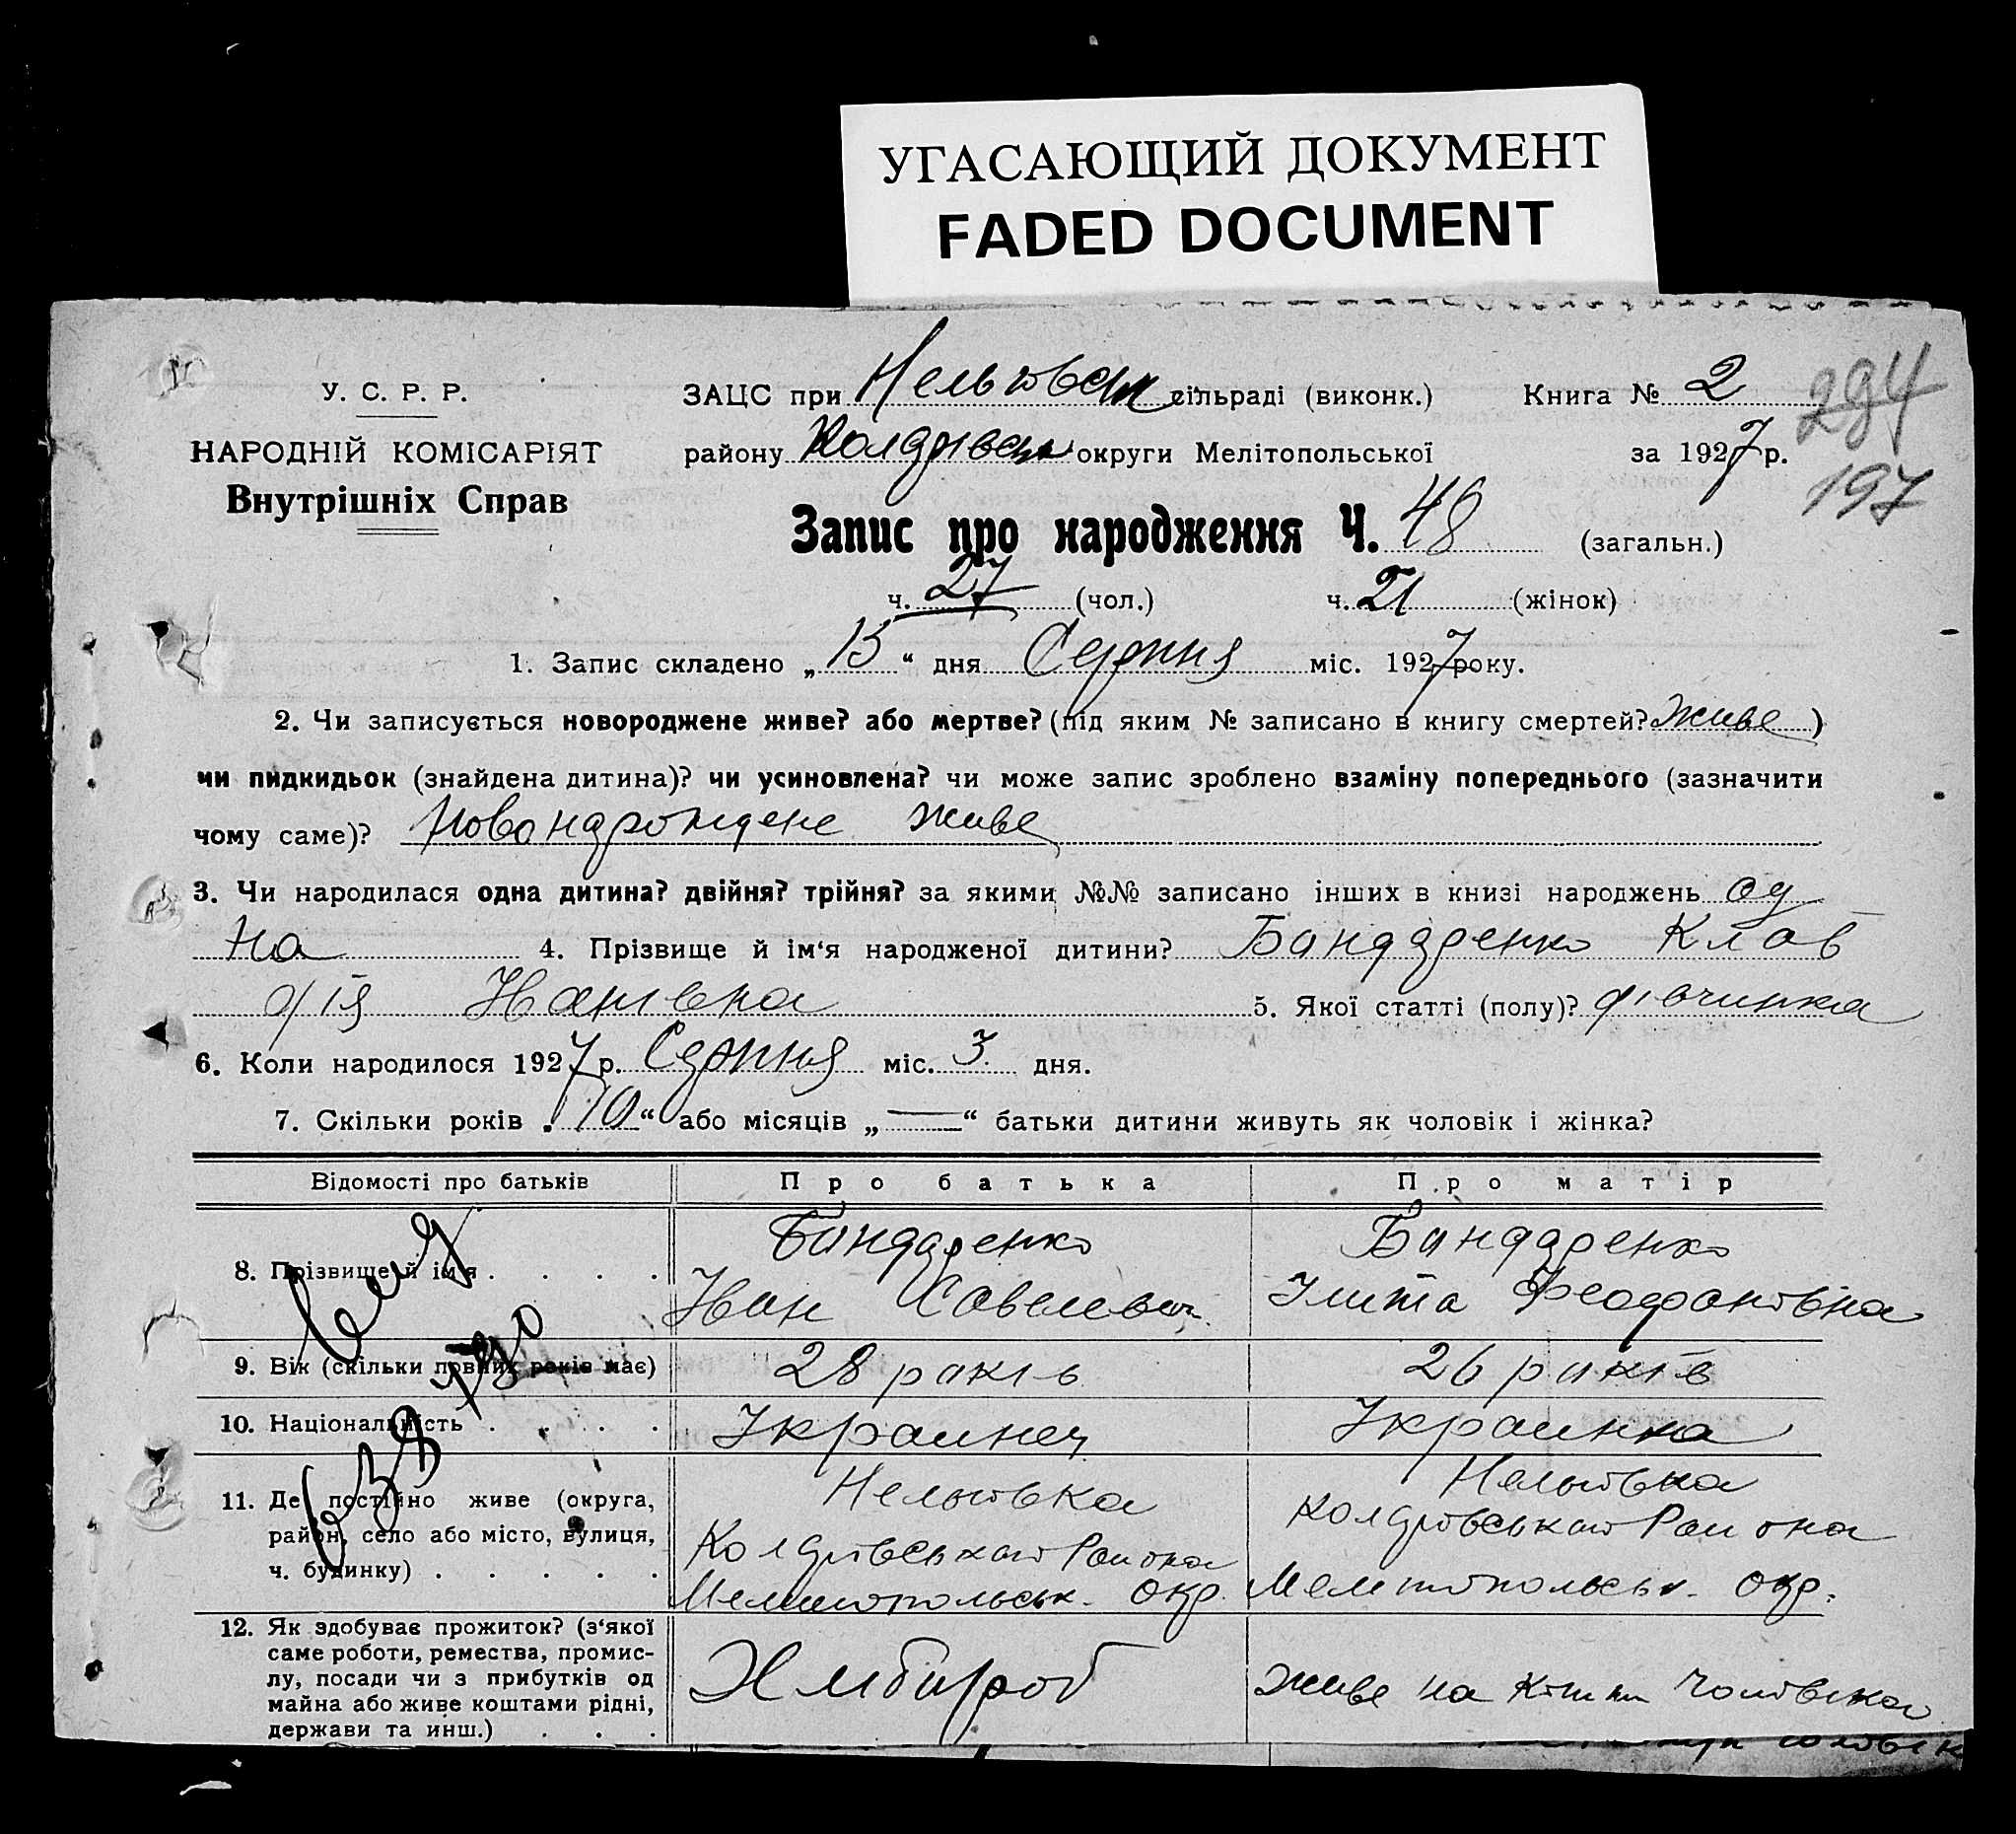 УГАСАЮЩИЙ ДОКУМЕНТ
FADED DOCUMENT
У. С. Р. Р.
НАРОДНІЙ КОМІСАРІЯТ
Внутрішніх Справ
ЗАЦС при Нельговськ сільраді (виконк.) Книга № 2
району округи Мелітопольської за 1927 р.
294
197
Запис про народження Ч. 48 (загальн.)
ч. 27 (чол.) ч. 21 (жінок)
1. Запис складено „ 15 “ дня Серпня міс. 1927 року.
2. Чи записується новороджене живе? або мертве? (під яким № записано в книгу смертей? живе )
чи пидкидьок (знайдена дитина)? чи усиновлена? чи може запис зроблено взаміну попереднього (зазначити
чому саме)? живе
3. Чи народилася одна дитина? двійня? трійня? за якими №№ записано інших в книзі народжень од
на 4. Прізвище й ім‘я народженої дитини? Бандаренко Клав
дія Ивановна 5. Якої статті (полу)? дівчинка
6. Коли народилося 1927 р. Серпня міс. 3 дня.
7. Скільки років „ 10 “ або місяців „ — “ батьки дитини живуть як чоловік і жінка?
Відомості про батьків Про батька Про матір
8. Прізвище й ім‘я . . . . Бандаренко Бандаренко
Иван Савелевич
9. Вік (скільки повних років має) 28 раків 26 раків
10. Національність . . . . Украинец Украинка
11. Де постійно живе (округа,
район, село або місто, вулиця,
ч. будинку) . . . . .
Нельговка
Района
Мелитопольськ. окр.
Нельговка
Района
Мелитопольськ. окр.
12. Як здобуває прожиток? (з‘якої
саме роботи, ремества, промис-
лу, посади чи з прибутків од
майна або живе коштами рідні,
держави та инш.) . . .
Хлібороб
живе на чоловіка